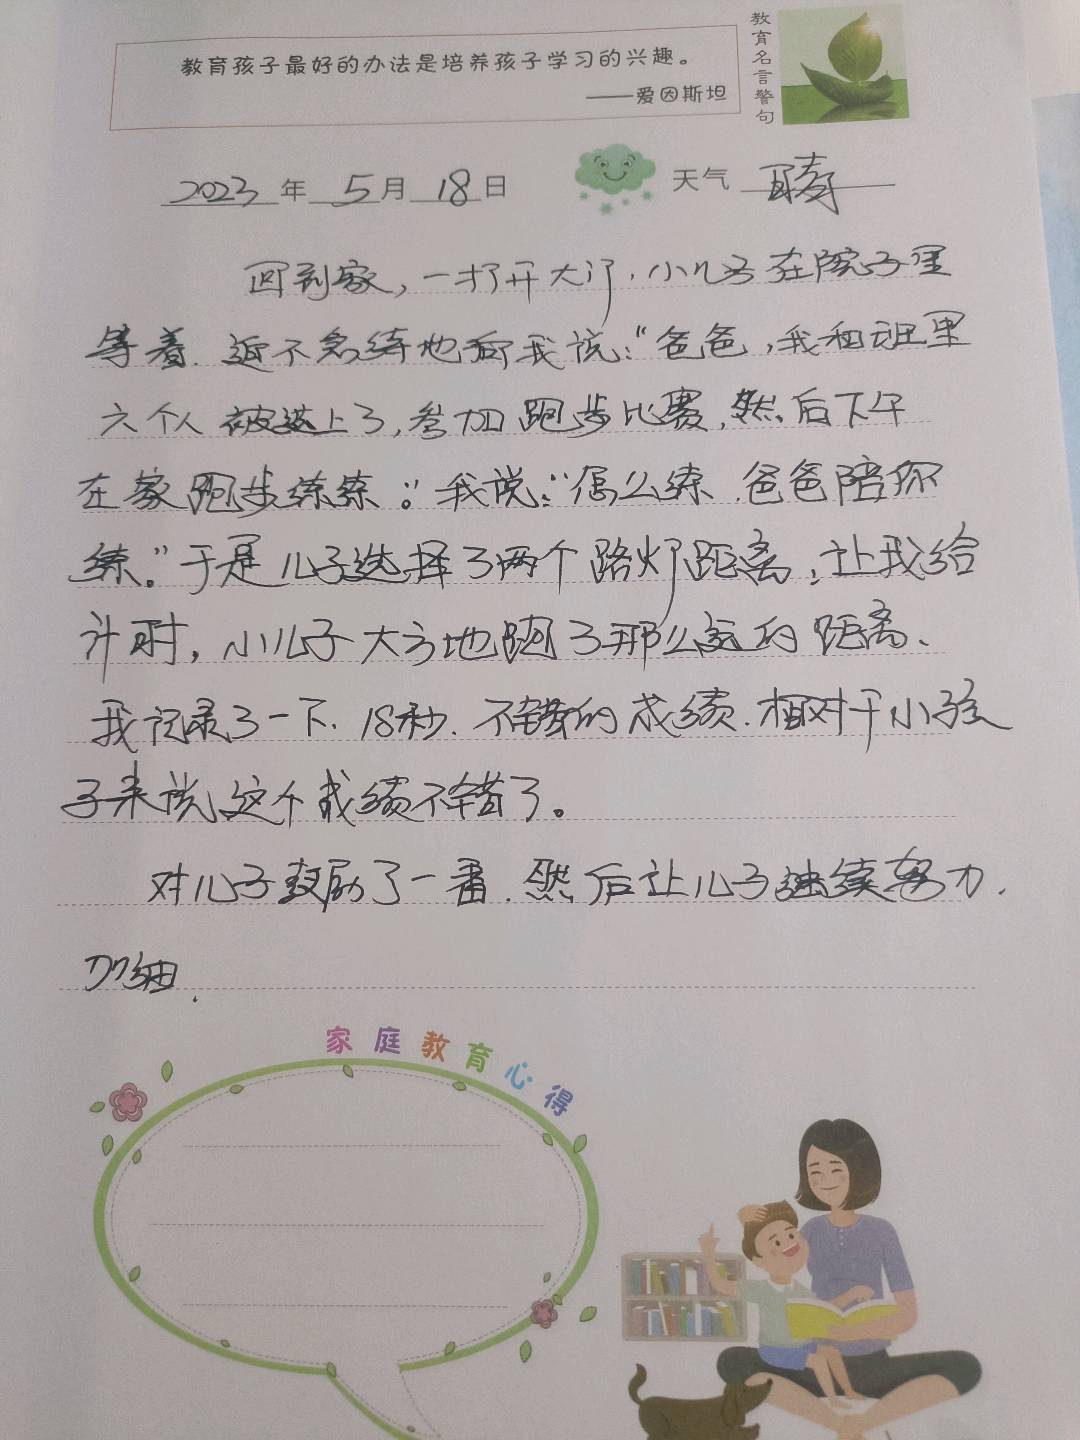 教育孩子最好的办法是培养孩子学习的兴趣。
——爱因斯坦
教育名言警句
2023年5月18日 天气 晴
回到家，一打开大门，小儿子在院子里
等着.迫不急待地和我说：“爸爸，我和班里
六个人被选上了，参加跑步比赛，然后下午
在家跑步练练。”我说：“怎么练，爸爸陪你
练。”于是儿子选择了两个路灯距离，让我给
计时，小儿子大方地跑了那么远的距离、
我记录了一下.18秒.不错的成绩.相对于小孩
子来说这个成绩不错了。
对儿子鼓励了一番.然后让儿子继续努力.
加油.
家庭教育心得